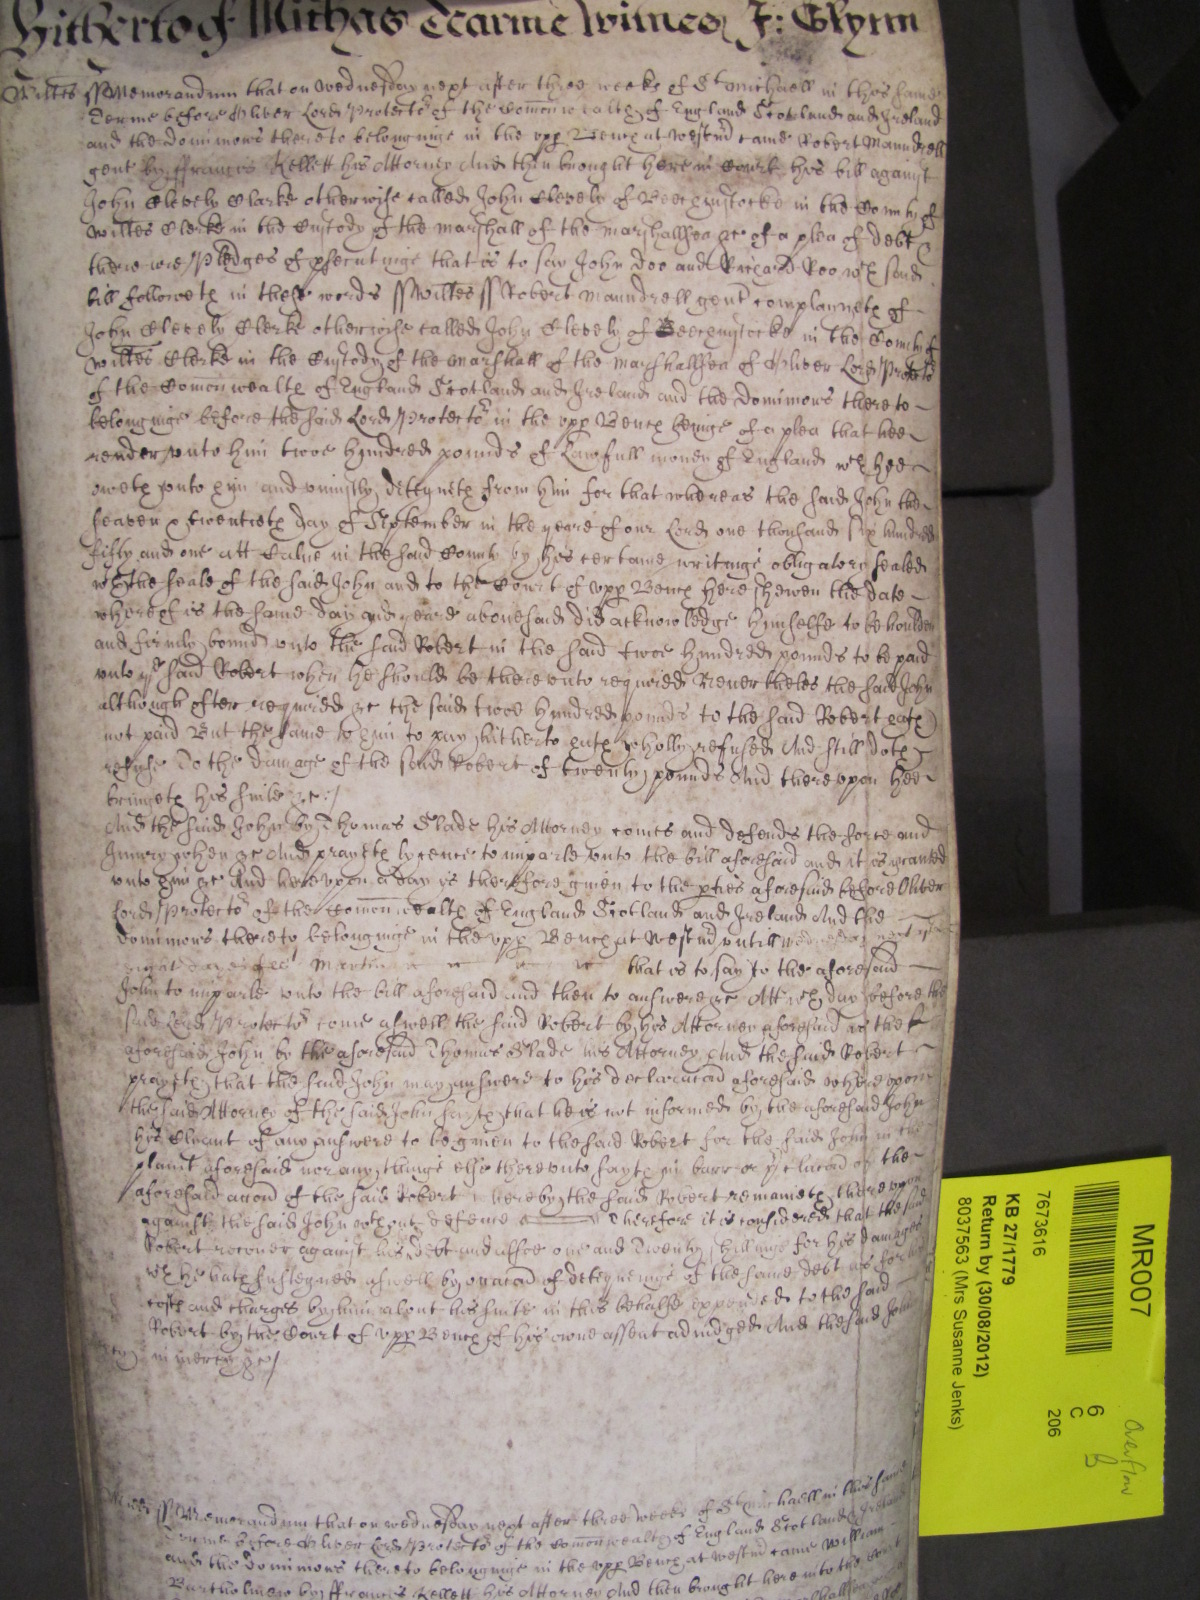 Hitherto of Michas Tearme Wittnes J: Glynn
Wiltes ss Memorandum that on Wednesday next after three weeks of St Michaell in this same
Terme before Oliver Lord Protector of the Comonwealth of England Scotland and Ireland
and the dominions thereto belonginge in the upp Bench at Westmr came Robert Maundrell
gent by ffrancis Kellett his Attorney And then brought here in Court his bill against
John Clevely Clarke otherwise called John Clevely of in the County of
Willtes Clerke in the Custody of the Marshall of the Marshallsea &c of a plea of debt
there are Pledges of psecutinge that is to say John Doo and Richard Roo wch said
bill followeth in these words ss Willtes ss Robert Maundrell gent complayneth of
John Clevely Clerke otherwise called John Clevely of in the County of
Willtes Clerke in the Custody of the Marshall of the Marshallsea of Oliver Lord Protector
of the Comonwealth of England Scotland and Ireland and the dominions thereto
belonginge before the said Lord Protector in the upp Bench beinge of a plea that hee
render unto him twoe hundred pounds of Lawfull money of England wch hee
oweth unto him and uniustly deteyneth from him for that whereas the said John the
seaven & twentieth day of September in the yeare of our Lord one thousand six hundred
fifty and one att Calne in the said County by his certaine writinge obligatory sealed
wth the seale of the said John and to the Court of upp Bench here shewen the date
whereof is the same day and yeare abovesaid did acknowledge himselfe to be houlden
and firmly bound unto the said Robert in the said twoe hundred pounds to be paid
unto ye said Robert when he should be thereunto required Neverthelesse the said John
although often required &c the said twoe hundred pounds to the said Robert hath
not paid But the same to him to pay hitherto hath wholly refused And still doth
refuse To the damage of the said Robert of twenty pounds And thereupon hee
bringeth his suite &c:/
And the said John by Thomas Slade his Attorney comes and defends the force and
Iniury when &c And prayeth lycence to imparle unto the bill aforesaid and it is graunted
unto him &c And hereupon a day is therefore given to the pties aforesaid before Oliver
Lord Protector of the Comonwealth of England Scotland and Ireland And the
dominions thereto belonginge in the upp Bench at Westmr untill Wednesday next
eight dayes of St Martin that is to say to the aforesaid
John to imparle unto the bill aforesaid and then to answere &c Att wch day before the
said Lord Protector come aswell the said Robert by his Attorney aforesaid as the
aforesaid John by the aforesaid Thomas Slade his Attorney And the said Robert
prayeth that the said John may answere to his declaracon aforesaid whereupon
the said Attorney of the said John sayth that he is not informed by the aforesaid John
his Clyant of any answere to be given to the said Robert for the said John in the
plaint aforesaid nor any thinge else thereunto sayth in barr or of the
aforesaid accon of the said Robert whereby the said Robert remaineth thereupon
against the said John wthout defence Therefore it is considered that the said
Robert recover against his debt and allsoe one and Twenty shillings for his damages
wch he hath susteyned aswell by occacon of deteyneinge of the same debt as for his
costs and charges by him about his suite in this behalfe expended to the said
Robert by the Court of upp Bench of his owne assent adiudged And the said John
in mercy &c/
ss Memorandum that on Wednesday next after three weeks of St Michaell in this same
Terme before Oliver Lord Protector of the Comonwealth of England Scotland Ireland
and the dominions thereto belonginge in the upp Bench at Westmr came William
Bartholmew by ffrancis Kellett his Attorney And then brought here into the Court
MR007
6
C
206
7673616
KB 27/1779
Return by (30/08/2012)
8037563 (Mrs Susanne Jenks)
Overflow
B